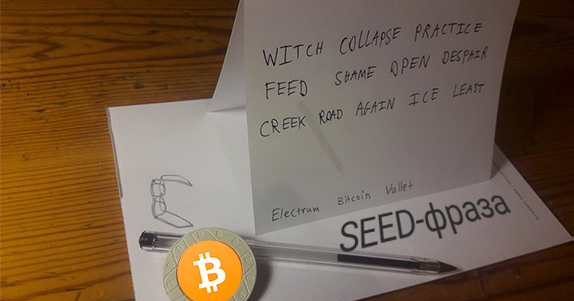 WITCH COLLAPSE PRACTICE
FEED SHAME OPEN DESPAIR
CREEK ROAD AGAIN ICE LEAST
Electrum Bitcoin Wallet
SEED-фраза